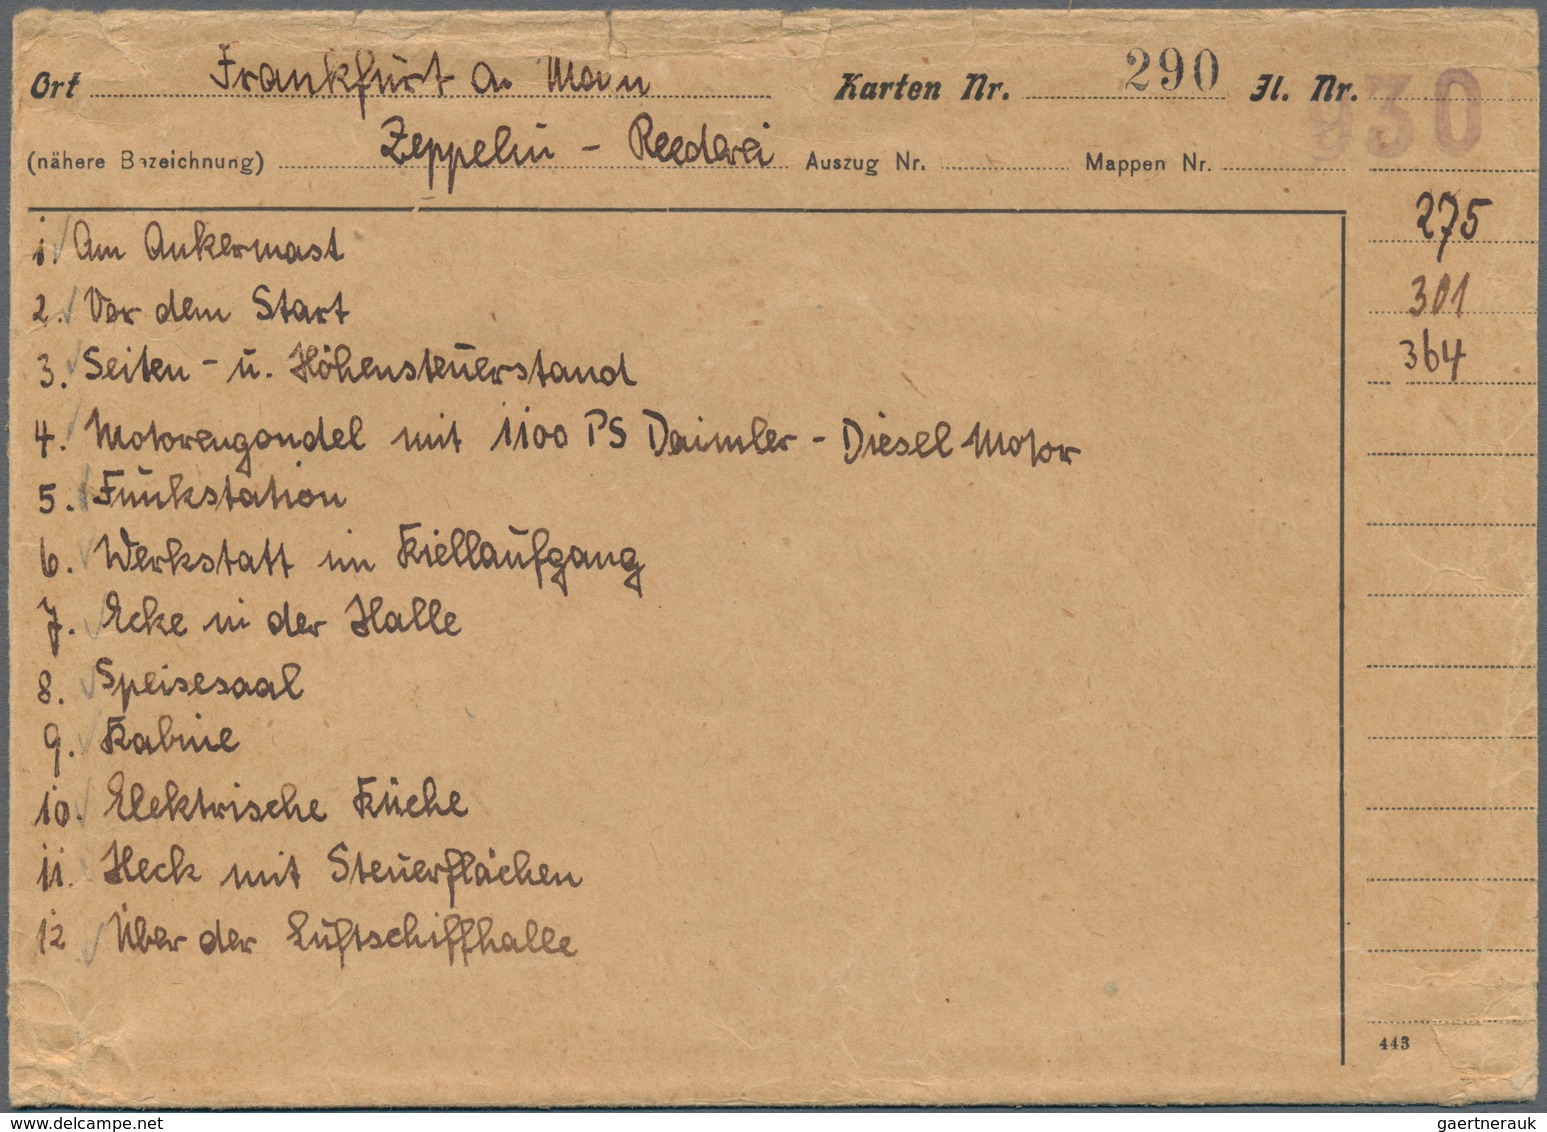 Ort Frankfurt a. Main Karten Nr. 290 Jl. Nr. 930
(nähere Bezeichnung) Zeppelin - Reederei Auszug Nr. Mappen Nr.
275
301
364
1. Am Ankermast
2. Vor dem Start
3. Seiten - u. Höhensteuerstand
4. Motorengondel mit 1100 PS Daimler - Diesel Motor
5. Funkstation
6. Werkstatt im Kiellaufgang
7. Ecke in der Halle
8. Speisesaal
9. Kabine
10. Elektrische Küche
11. Heck mit Steuerflächen
12 Über der Luftschiffhalle
443
www.delcampe.net
gaertnerauk